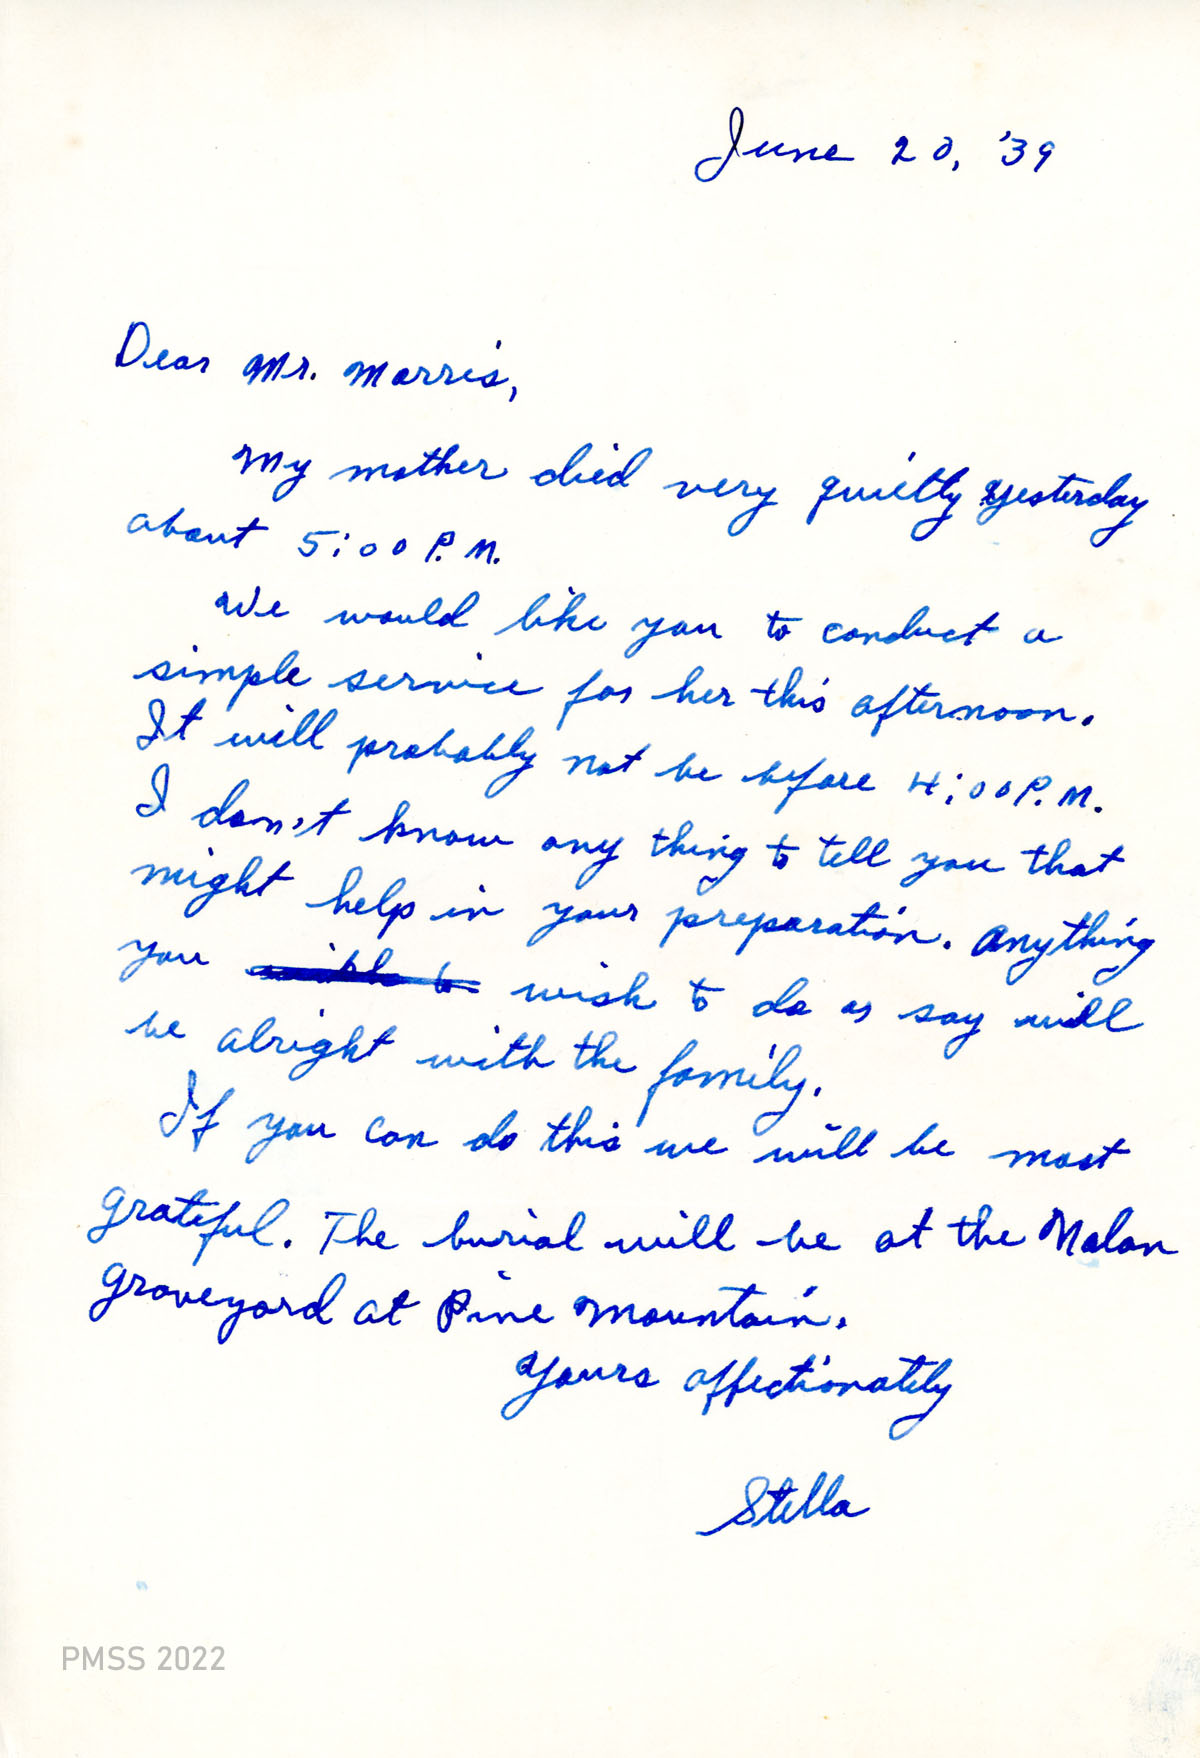 June 20, '39
Dear Mr. Morris,
My mother died very quietly yesterday
about 5:00 P.M.
We would like you to conduct a
simple service for her this afternoon.
It will probably not be before 4:00 P.M.
I don't know any thing to tell you that
might help in your preparation. Anything
you wish to do or say will
be alright with the family.
If you can do this we will be most
grateful. The burial will be at the Nolan
graveyard at Pine Mountain.
Yours affectionately
Stella
PMSS 2022